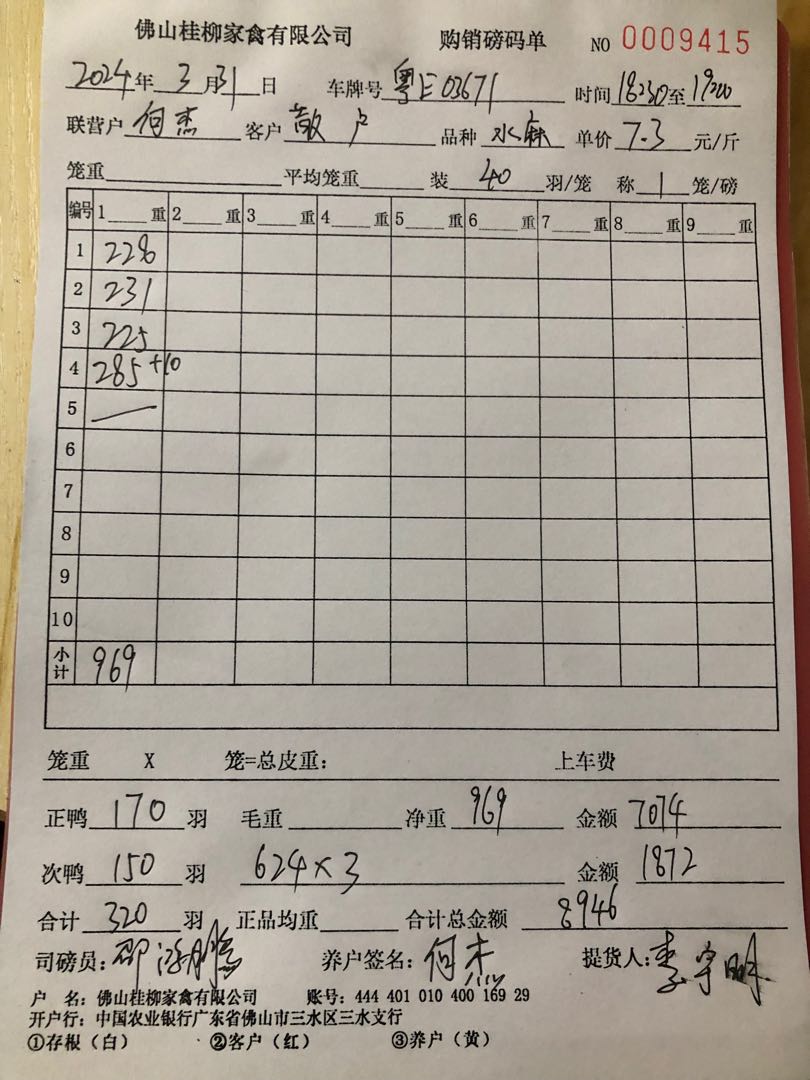 佛山桂柳家禽有限公司 购销磅码单 NO 0009415
2024年3月31日 车牌号 粤E03671 时间18:30至19:20
联营户 何杰 客户 散户 品种 水麻 单价 7.3 元/斤
笼重 平均笼重 装 40 羽/笼 称 1 笼/磅
编号 1 重 2 重 3 重 4 重 5 重 6 重 7 重 8 重 9 重
1 228
2 231
3 225
4 285+10
5 —
6
7
8
9
10
小计 969
笼重 X 笼=总皮重: 上车费
正鸭 170 羽 毛重 净重 969 金额 7074
次鸭 150 羽 624×3 金额 1872
合计 320 羽 正品均重 合计总金额 8946
司磅员: 养户签名: 何杰 提货人: 李宇明
户 名: 佛山桂柳家禽有限公司 账号: 444 401 010 400 169 29
开户行: 中国农业银行广东省佛山市三水区三水支行
①存根(白) ②客户(红) ③养户(黄)